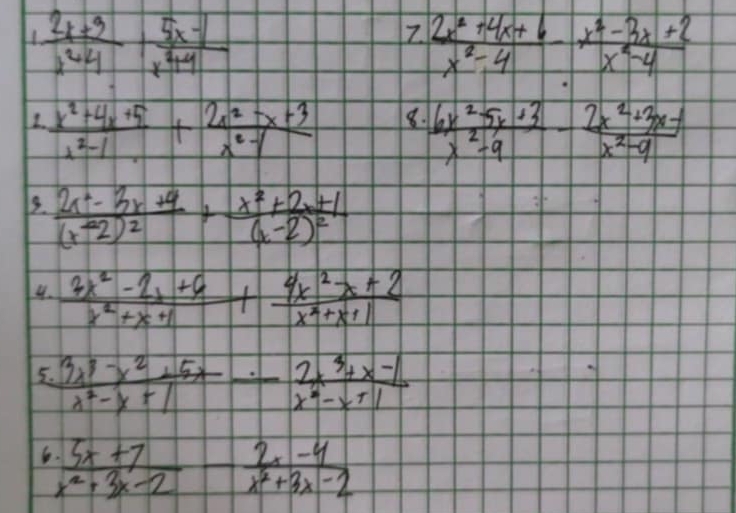 1. (2x+3)/(x²+4) + (5x-1)/(x²+4)
2. (x²+4x+5)/(x²-1) + (2x²-x+3)/(x²-1)
3. (2x²-3x+4)/(x-2)² + (x²+2x+1)/(x-2)²
4. (3x²-2x+6)/(x²+x+1) + (4x²-x+2)/(x²+x+1)
5. (3x³-x²+5x)/(x²-x+1) - (2x³+x-1)/(x²-x+1)
6. (5x+7)/(x²+3x-2) - (2x-4)/(x²+3x-2)
7. (2x²+4x+6)/(x²-4) - (x²-3x+2)/(x²-4)
8. (6x²-5x+3)/(x²-9) - (2x²+3x-1)/(x²-9)